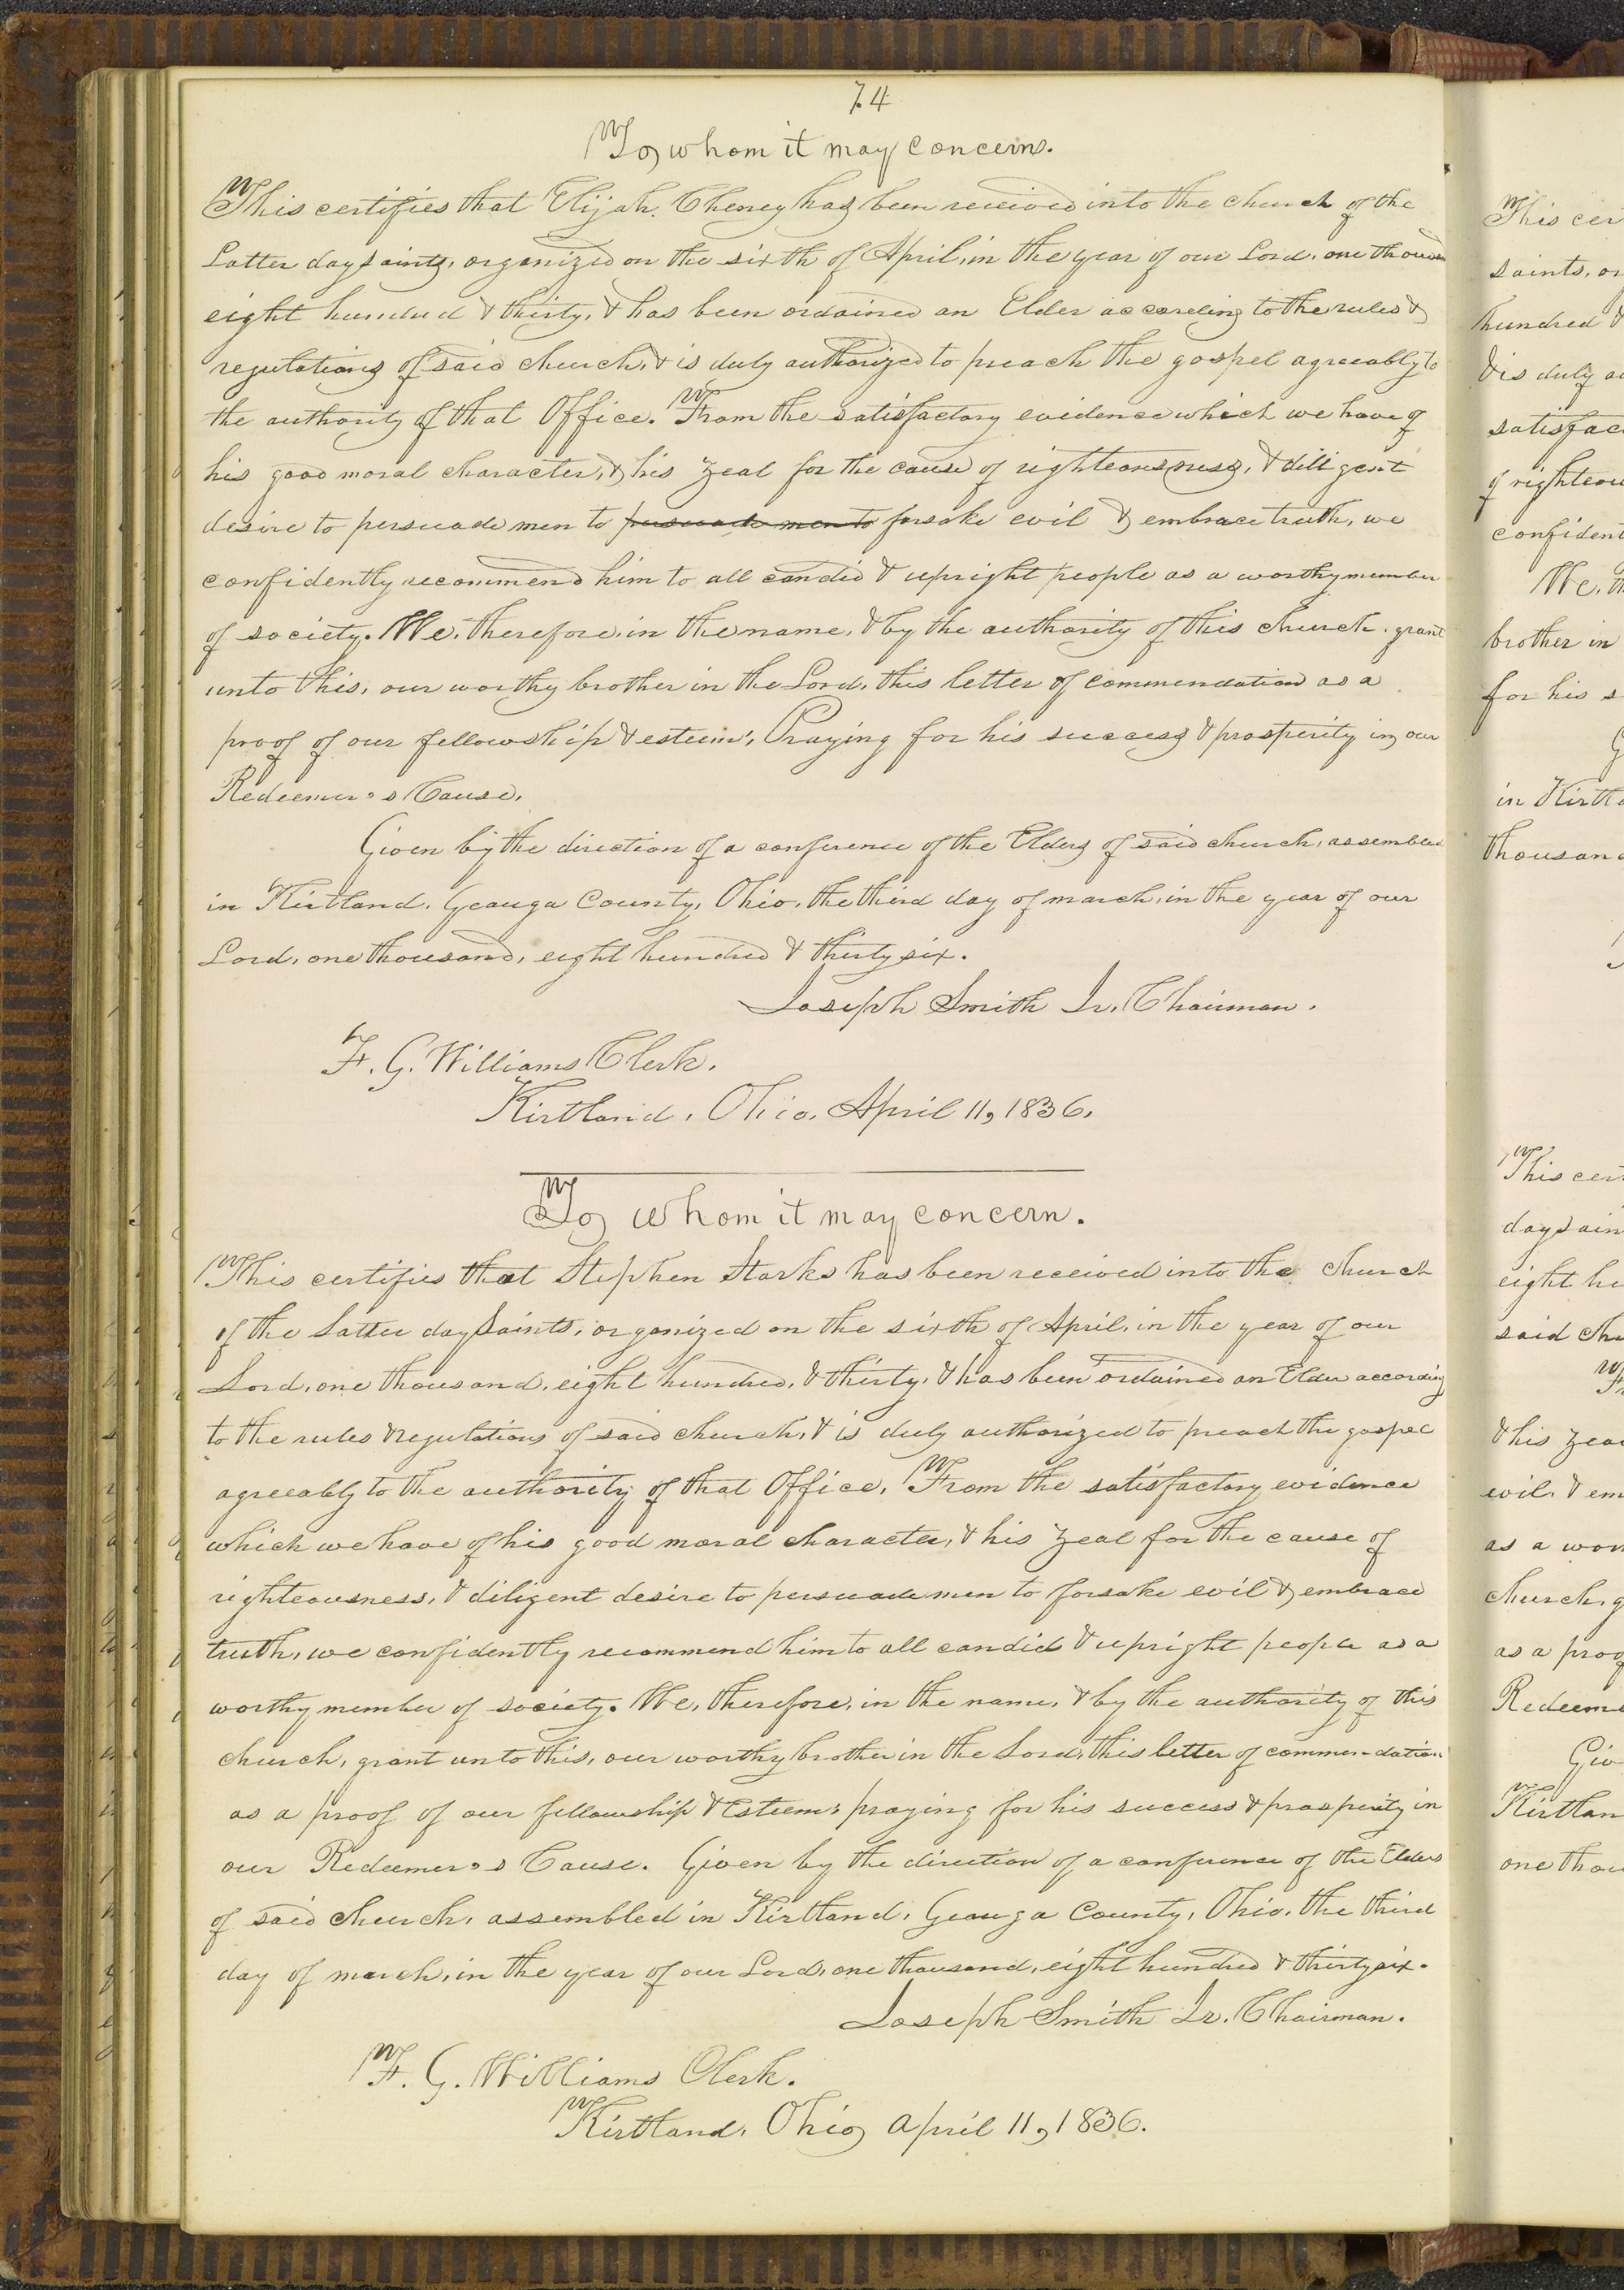 74
To whom it may concern.
This certifies that Elijah Cheney has been received into the church of the
Latter day saints, organized on the sixth of April, in the year of our Lord, one thousan
eight hundred & thirty, & has been ordained an Elder according to the rules &
regulations of said church, & is duly authorized to preach the gospel agreeably to
the authority of that Office. From the satisfactory evidence which we have of
his good moral character, & his zeal for the cause of righteousness, & diligent
desire to persuade men to persuade men to forsake evil & embrace truth, we
confidently recommend him to all candid & upright people as a worthy member
of society. We, therefore, in the name, & by the authority of this church, grant
unto this, our worthy brother in the Lord, this letter of commendation as a
proof of our fellowship & esteem; Praying for his success & prosperity in our
Redeemer's Cause.
Given by the direction of a conference of the Elders of said church, assembled
in Kirtland, Geauga County, Ohio, the third day of march, in the year of our
Lord, one thousand, eight hundred & thirty six.
Joseph Smith Jr. Chairman.
F. G. Williams Clerk.
Kirtland, Ohio, April 11, 1836.
To whom it may concern.
This certifies that Stephen Starks has been received into the church
of the Latter day Saints, organized on the sixth of April, in the year of our
Lord, one thousand, eight hundred, & thirty, & has been ordained an Elder according
to the rules & regulations of said church, & is duly authorized to preach the gospel
agreeably to the authority of that Office. From the satisfactory evidence
which we have of his good moral character, & his zeal for the cause of
righteousness, & diligent desire to persuade men to forsake evil & embrace
truth, we confidently recommend him to all candid & upright people as a
worthy member of society. We, therefore, in the name, & by the authority of this
church, grant unto this, our worthy brother in the Lord, this letter of commendation
as a proof of our fellowship & Esteem; praying for his success & prosperity in
our Redeemer's Cause. Given by the direction of a conference of the Elders
of said church, assembled in Kirtland, Geauga County, Ohio, the third
day of march, in the year of our Lord, one thousand, eight hundred & thirty six.
Joseph Smith Jr. Chairman.
F. G. Williams Clerk.
Kirtland, Ohio, April 11, 1836.
This cer
saints, or
hundred &
& is duly au
satisfac
of righteou
confident
We, th
brother in
for his s
G
in Kirtla
thousand
This cert
day sain
eight hu
said chu
& his zeal
evil, & em
as a wor
church, g
as a proo
Redeeme
Giv
Kirtlan
one thou